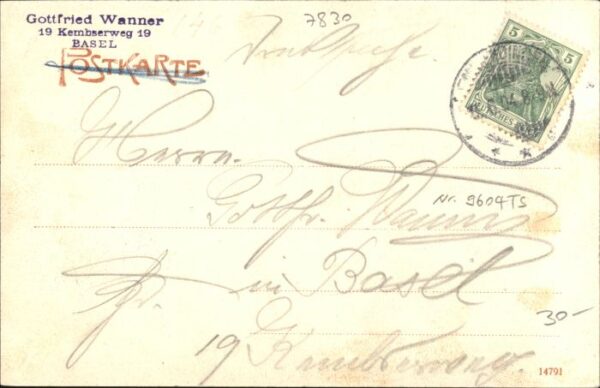 Gottfried Wanner
19 Kembserweg 19
BASEL
POSTKARTE
7830
Drucksache.
5 5
DEUTSCHES REICH
Herrn
Gottfr. Wanner
Nr. 9604TS
in Basel
30-
19 Kembserweg.
14791